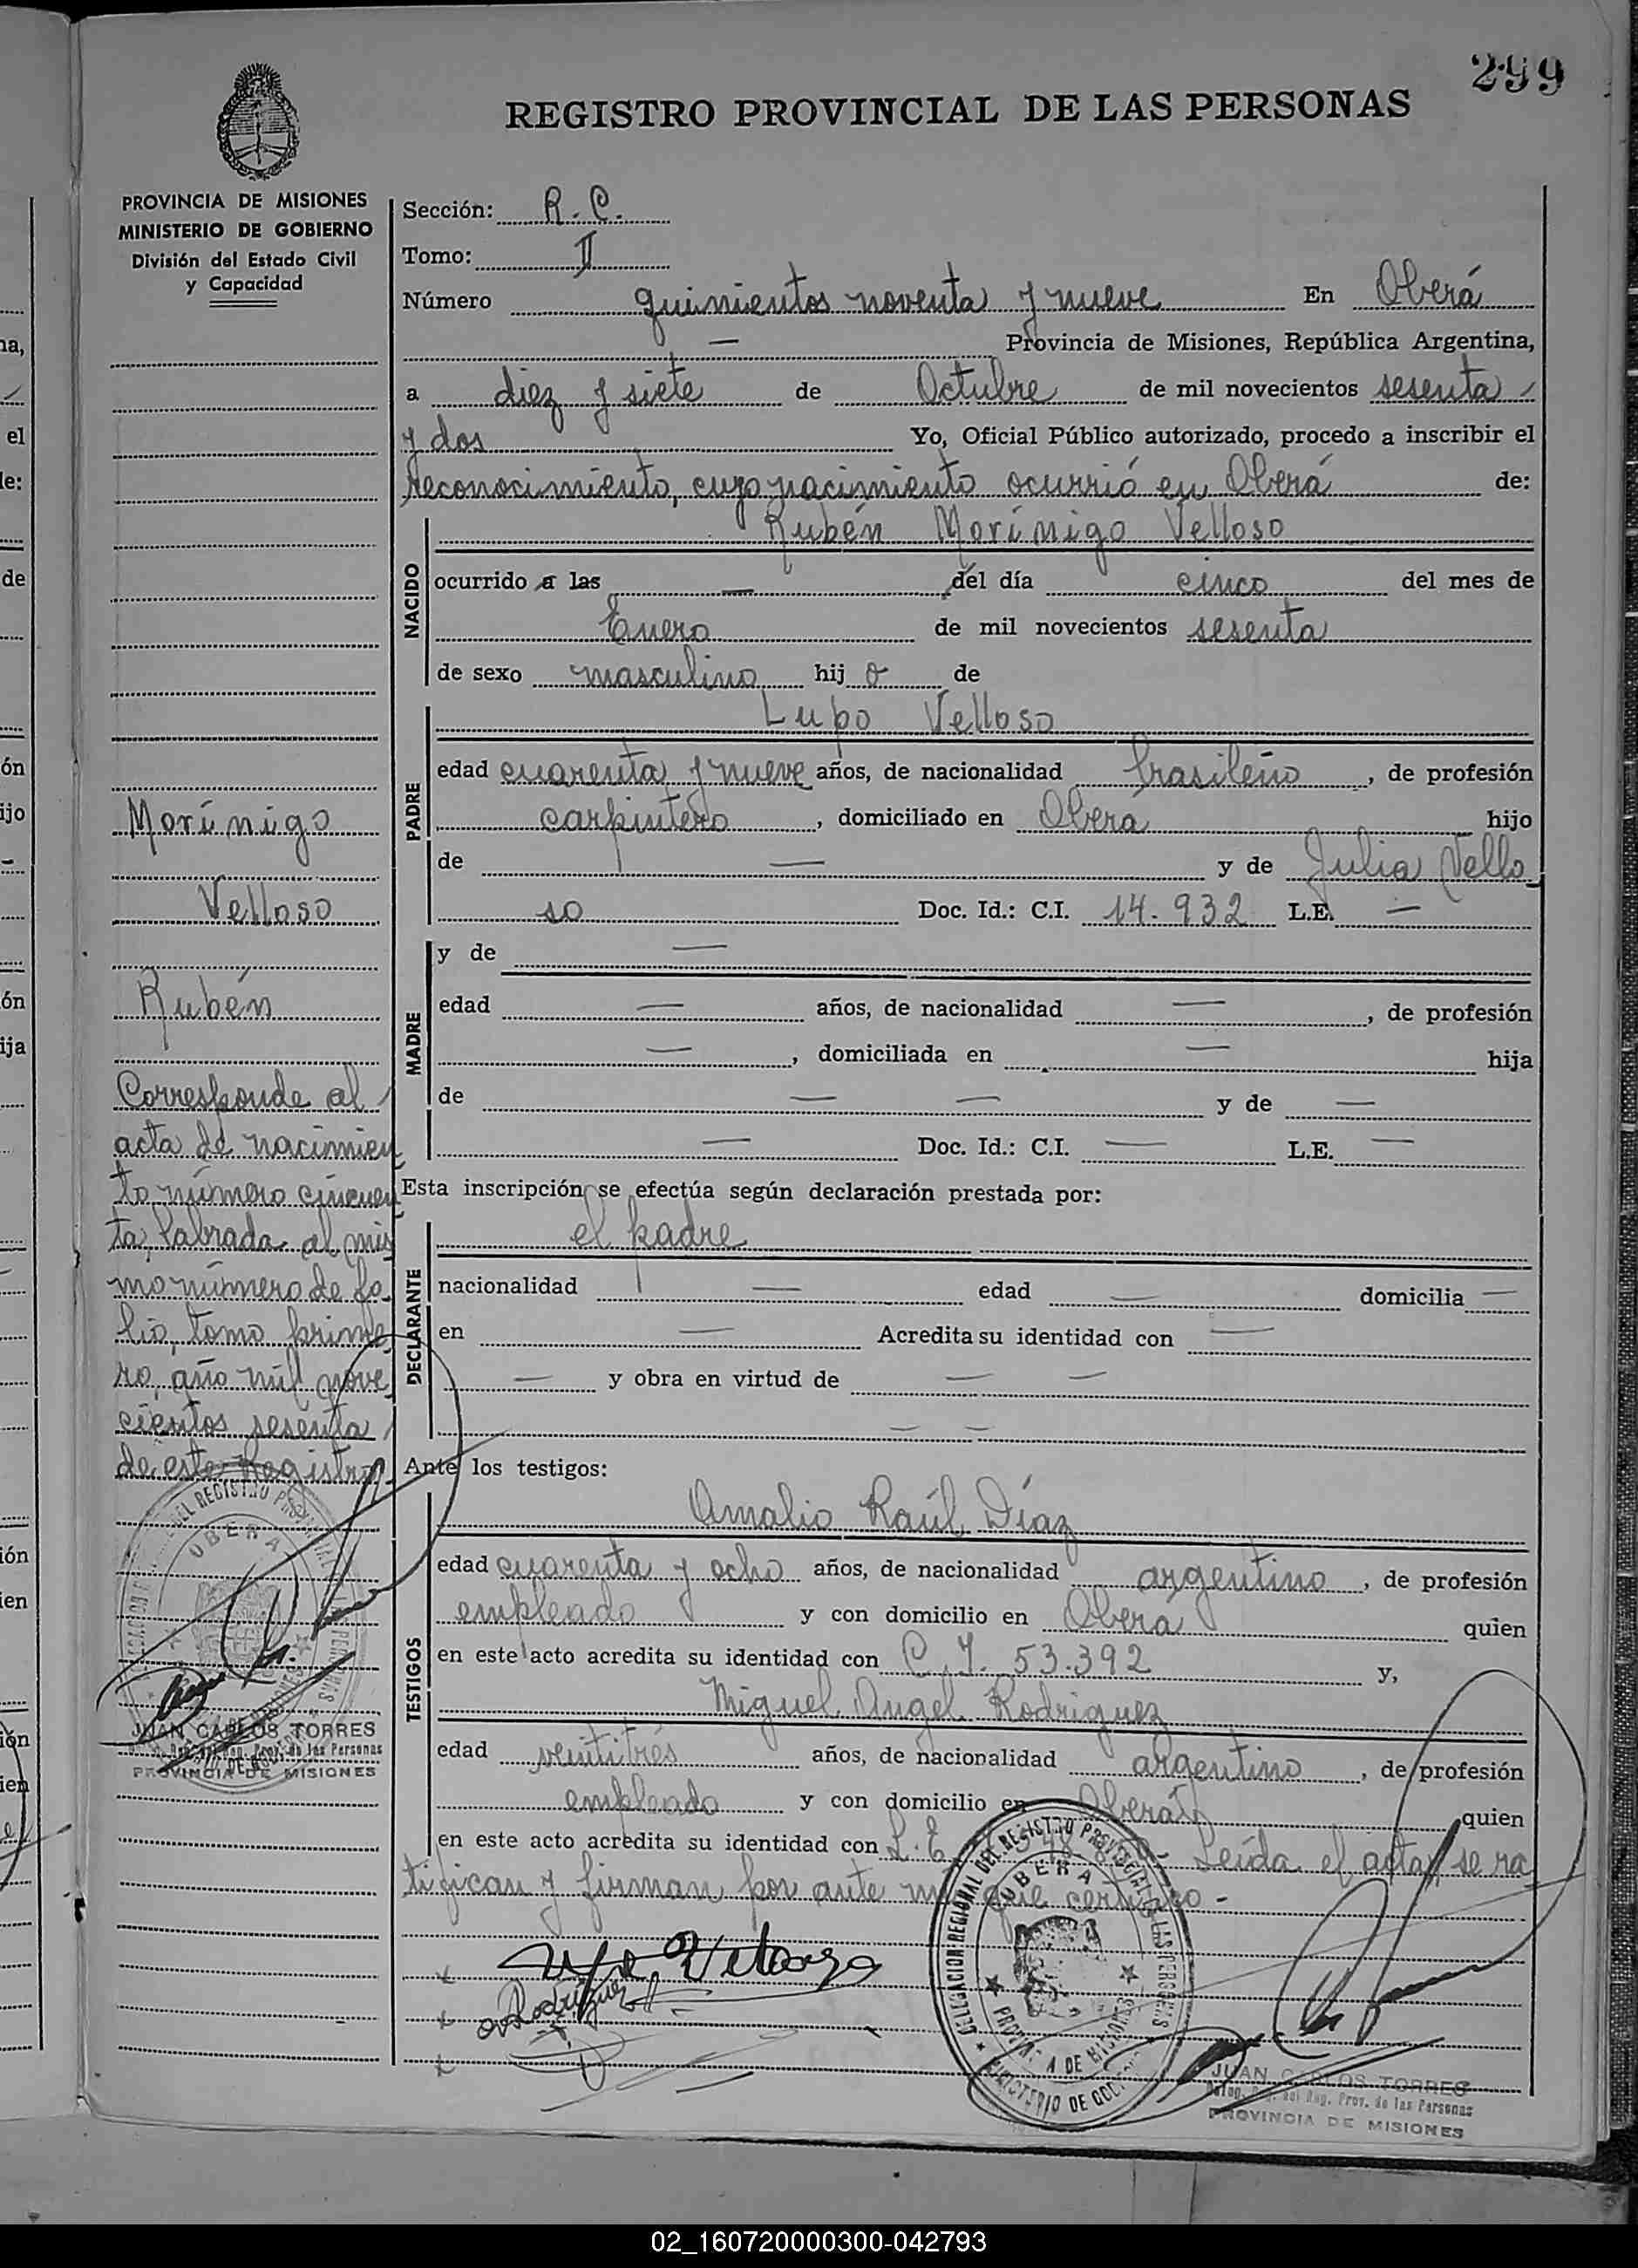 299
REGISTRO PROVINCIAL DE LAS PERSONAS
PROVINCIA DE MISIONES
MINISTERIO DE GOBIERNO
División del Estado Civil
y Capacidad
Sección: R. C.
Tomo: II
Número quinientos noventa y nueve En Oberá
— Provincia de Misiones, República Argentina,
a diez y siete de Octubre de mil novecientos sesenta
y dos Yo, Oficial Público autorizado, procedo a inscribir el
reconocimiento, cuyo nacimiento ocurrió en Oberá de:
NACIDO
Rubén Morínigo Velloso
ocurrido a las — del día cinco del mes de
Enero de mil novecientos sesenta
de sexo masculino hij o de
PADRE
Lupo Velloso
edad cuarenta y nueve años, de nacionalidad brasileño, de profesión
carpintero, domiciliado en Oberá hijo
de — y de Julia Vello
so Doc. Id.: C.I. 14.932 L.E. —
MADRE
y de —
edad — años, de nacionalidad —, de profesión
—, domiciliada en — hija
de — — y de —
— Doc. Id.: C.I. — L.E. —
Esta inscripción se efectúa según declaración prestada por:
DECLARANTE
el padre
nacionalidad — edad — domicilia —
en — Acredita su identidad con —
— y obra en virtud de — —
— —
Ante los testigos:
TESTIGOS
Amalio Raúl Díaz
edad cuarenta y ocho años, de nacionalidad argentino, de profesión
empleado y con domicilio en Oberá quien
en este acto acredita su identidad con C. I. 53.392 y,
Miguel Angel Rodriguez
edad veintitrés años, de nacionalidad argentino, de profesión
empleado y con domicilio en Oberá quien
en este acto acredita su identidad con L. E. Leída el acta, se ra
tifican y firman por ante mí que certifico -
Morínigo
Velloso
Rubén
Corresponde al
acta de nacimien
to número cincuen
ta, labrada al mis
mo número de fo
lio, tomo prime
ro, año mil nove
cientos sesenta
de este Registro
OBERA
JUAN CARLOS TORRES
Prov. de las Personas
PROVINCIA DE MISIONES
Rodriguez
DELEGACION REGIONAL DEL REGISTRO PROVINCIAL DE LAS PERSONAS
OBERA
JUAN CARLOS TORRES
Deleg. Reg. del Reg. Prov. de las Personas
PROVINCIA DE MISIONES
02_160720000300-042793